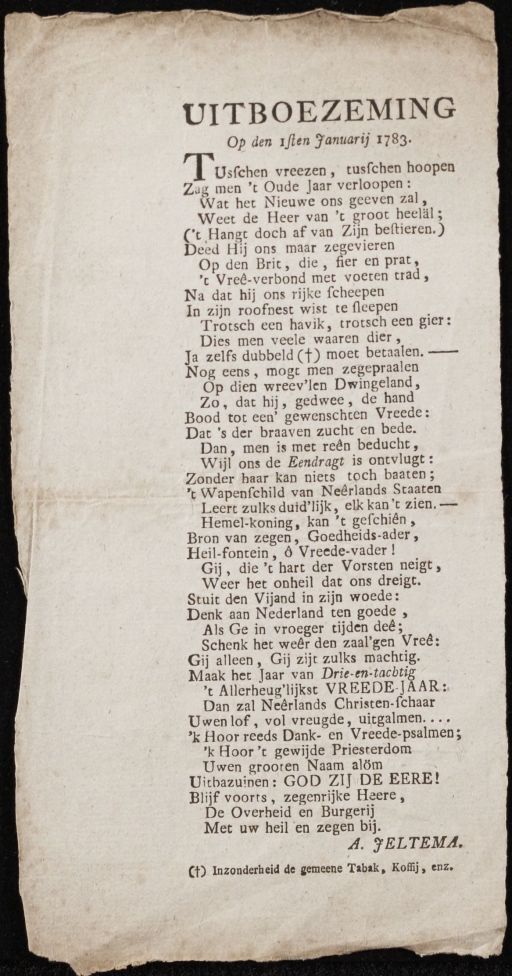 UITBOEZEMING
Op den 1sten Januarij 1783.
TUsſchen vreezen, tusſchen hoopen
Zag men 't Oude Jaar verloopen:
Wat het Nieuwe ons geeven zal,
Weet de Heer van 't groot heeläl;
('t Hangt doch af van Zijn beſtieren.)
Deed Hij ons maar zegevieren
Op den Brit, die, fier en prat,
't Vreê-verbond met voeten trad,
Na dat hij ons rijke ſcheepen
In zijn roofnest wist te ſleepen
Trotsch een havik, trotsch een gier:
Dies men veele waaren dier,
Ja zelfs dubbeld (†) moet betaalen. —
Nog eens, mogt men zegepraalen
Op dien wreev'len Dwingeland,
Zo, dat hij, gedwee, de hand
Bood tot een' gewenschten Vreede:
Dat 's der braaven zucht en bede.
Dan, men is met reên beducht,
Wijl ons de Eendragt is ontvlugt:
Zonder haar kan niets toch baaten;
't Wapenſchild van Neêrlands Staaten
Leert zulks duid'lijk, elk kan't zien. —
Hemel-koning, kan 't geſchiên,
Bron van zegen, Goedheids-ader,
Heil-fontein, ô Vreede-vader!
Gij, die 't hart der Vorsten neigt,
Weer het onheil dat ons dreigt.
Stuit den Vijand in zijn woede:
Denk aan Nederland ten goede,
Als Ge in vroeger tijden deê;
Schenk het weêr den zaal'gen Vreê:
Gij alleen, Gij zijt zulks machtig.
Maak het Jaar van Drie-en-tachtig
't Allerheug'lijkst VREEDE-JAAR:
Dan zal Neêrlands Christen-ſchaar
Uwen lof, vol vreugde, uitgalmen....
'k Hoor reeds Dank- en Vreede-psalmen;
'k Hoor 't gewijde Priesterdom
Uwen grooten Naam alöm
Uitbazuinen: GOD ZIJ DE EERE!
Blijf voorts, zegenrijke Heere,
De Overheid en Burgerij
Met uw heil en zegen bij.
A. JELTEMA.
(†) Inzonderheid de gemeene Tabak, Koffij, enz.